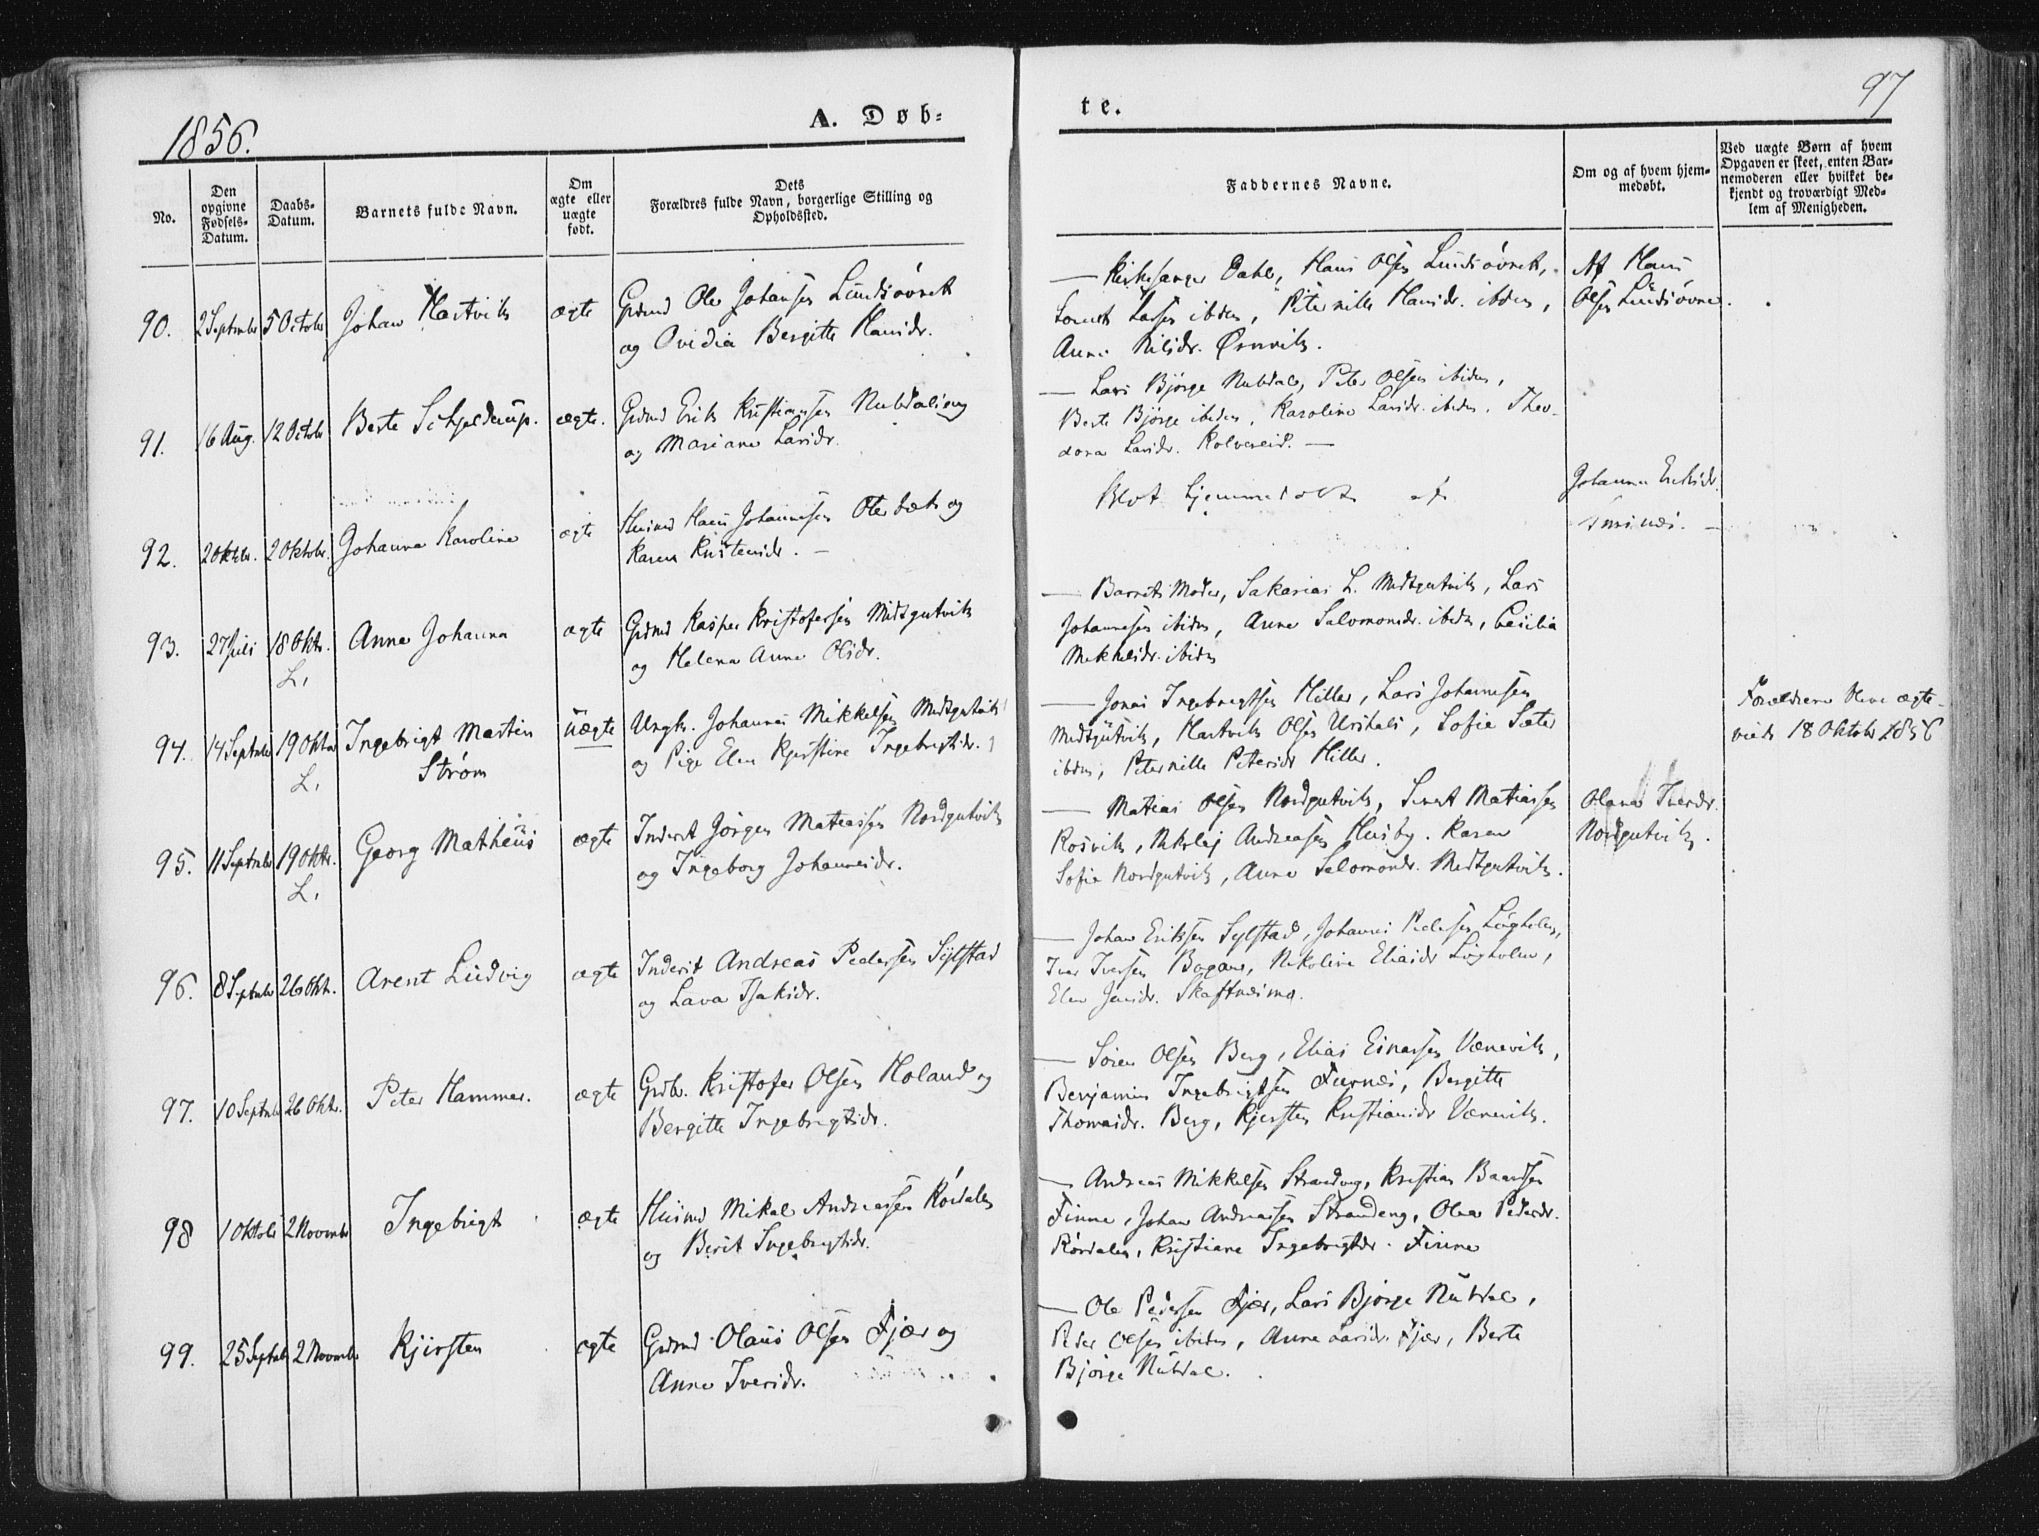 1856.
A. Døb-
te.
97
No.
Den opgivne Fødsels-Datum.
Daabs-Datum.
Barnets fulde Navn.
Om ægte eller uægte født.
Dets Forældres fulde Navn, borgerlige Stilling og Opholdssted.
Faddernes Navne.
Om og af hvem hjemmedøbt.
Ved uægte Børn af hvem Opgaven er skeet, enten Barnemoderen eller hvilket bekjendt og troværdigt Medlem af Menigheden.
90. 2 Septmbr 5 Octobr Johan Hartvik ægte Grdmd Ole Johansen Lundsøvret
og Ovidia Bergitte Hansdr.
— Kirkesanger Dahl, Hans Olsen Lundsøvret,
Lornts Lassen ibdm, Peternille Hansdr. ibdm,
Anne Nilsdr. Ørnvik.
Af Hans
Olsen Lundsøvre.
91. 16 Aug. 12 Octobr Berte Schjelderup. ægte. Grdmd Erik Kristiansen Nubdal
og Mariane Larsdr.
— Lars Bjørge Nubdal, Peter Olsen ibidm,
Berte Bjørge ibidm, Karoline Larsdr. ibidm, Theo-
dora Larsdr. Kolvereid. —
92. 2 Oktbr. 2 Oktobr. Johanna Karoline ægte Husmd Hans Johannesen Oterbæk og
Karen Kristensdr. —
Blot hjemmedøbt af
Johanna Eriksdr.
93. 27 Juli 18 Oktr. L. Anne Johanna ægte Grdmd Kasper Kristofersen Midtgutvik
og Helena Anna Olsdr.
— Barnets Moder, Sakarias L. Midtgutvik, Lars
Johannesen ibidm, Anne Salomonsdr. ibidm, Cecilia
Mekkelsdr. ibidm
94. 14 Septmbr 19 Oktbr L. Ingebrigt Martin
Strøm
uægte Ungk. Johannes Mikkelsen Midtgutvik
og Pige Elen Kjerstine Ingebrigtsdr.
— Jonas Ingebrigtsen Hiller, Lars Johannesen
Midtgutvik, Hartvik Olsen Urstali, Sofie Sæter
ibdm, Peternille Petersdr Hiller.
Forældrene bleve ægte-
viede 18 Oktobr 1856
95. 11 Septmbr 19 Oktr. L. Georg Mathëus ægte Inderst Jørgen Mateassen Nordgutvik
og Ingeborg Johannesdr.
— Mateas Olsen Nordgutvik, Sivert Matiassen
Rosvik, Nikolaj Andreassen Husby. Karen
Sofie Nordgutvik, Anne Salomonsdr. Midtgutvik.
Olava Iversdr.
Nordgutvik.
96. 8 Septmbr 26 Okt. Arent Ludvig ægte Inderst Andreas Pedersen Sylstad
og Lava Isaksdr.
— Johan Eriksen Sylstad, Johannes Pedersen Lugholm,
Iver Iversen Bogane, Nikoline Eliasdr Lugholm,
Elen Jensdr. Skaftnesmo.
97. 10 Septmbr 26 Oktr. Peter Hammer. ægte Grdbr. Kristofer Olsen Holand og
Bergitte Ingebrigtsdr.
— Søren Olsen Berg, Elias Einarsen Værevik,
Benjamin Ingebrigtsen Furnes, Bergitte
Thomasdr. Berg, Kjersten Kristiansdr Værevik.
98 1 Oktobr 2 Novmbr Ingebrigt ægte Husmd Mikal Andreassen Rørdalen
og Berit Ingebrigtsdr.
— Andreas Mikkelsen Strandeng, Kristian Baardsen
Finne, Johan Andreassen Strandeng, Olea Pedersdr.
Rørdalen, Kristiane Ingebrigtsdr. Finne
99. 25 Septmbr 2 Novmbr Kjersten ægte Grdmd Olaus Olsen Fjær og
Anne Iversdr.
— Ole Pedersen Fjær, Lars Bjørge Nubdal,
Peder Olsen ibidm, Anne Larsdr. Fjær, Berte
Bjørge Nubdal.